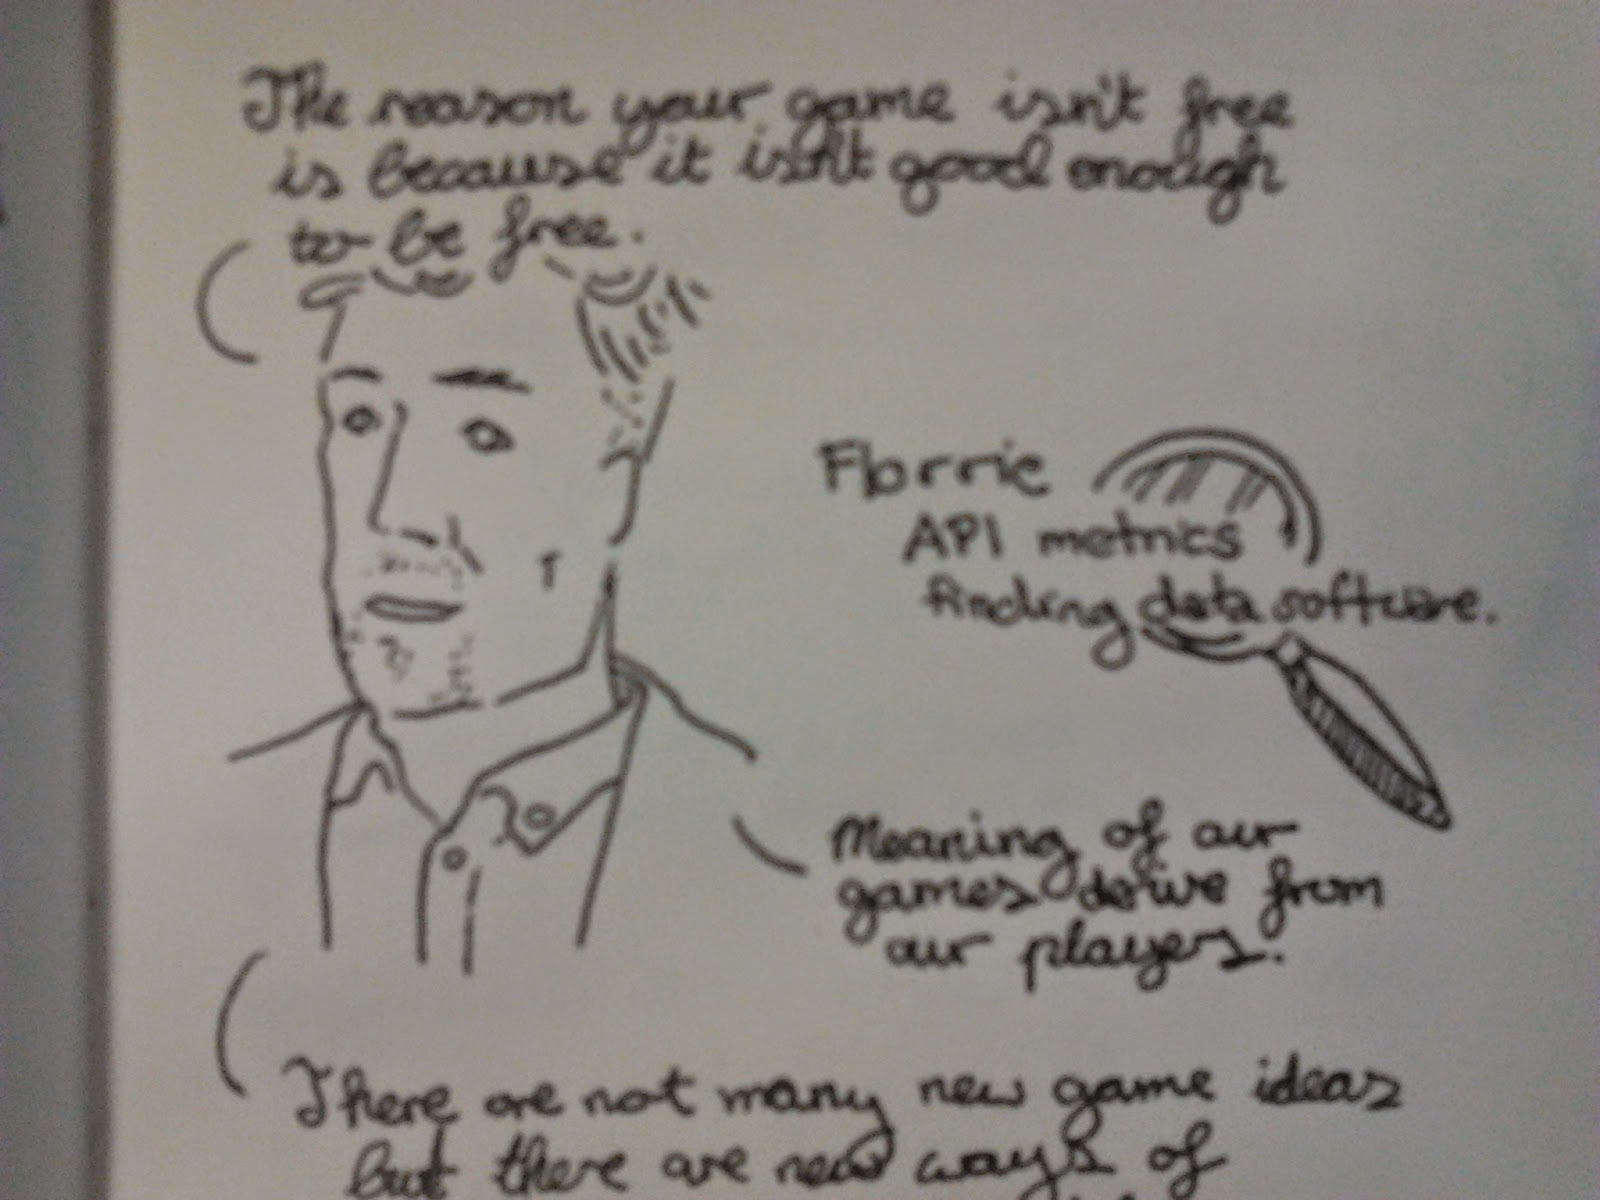 The reason your game isn't free
is because it isn't good enough
to be free.
Florrie
API metrics
finding data software.
Meaning of our
games derive from
our players.
There are not many new game ideas
but there are new ways of